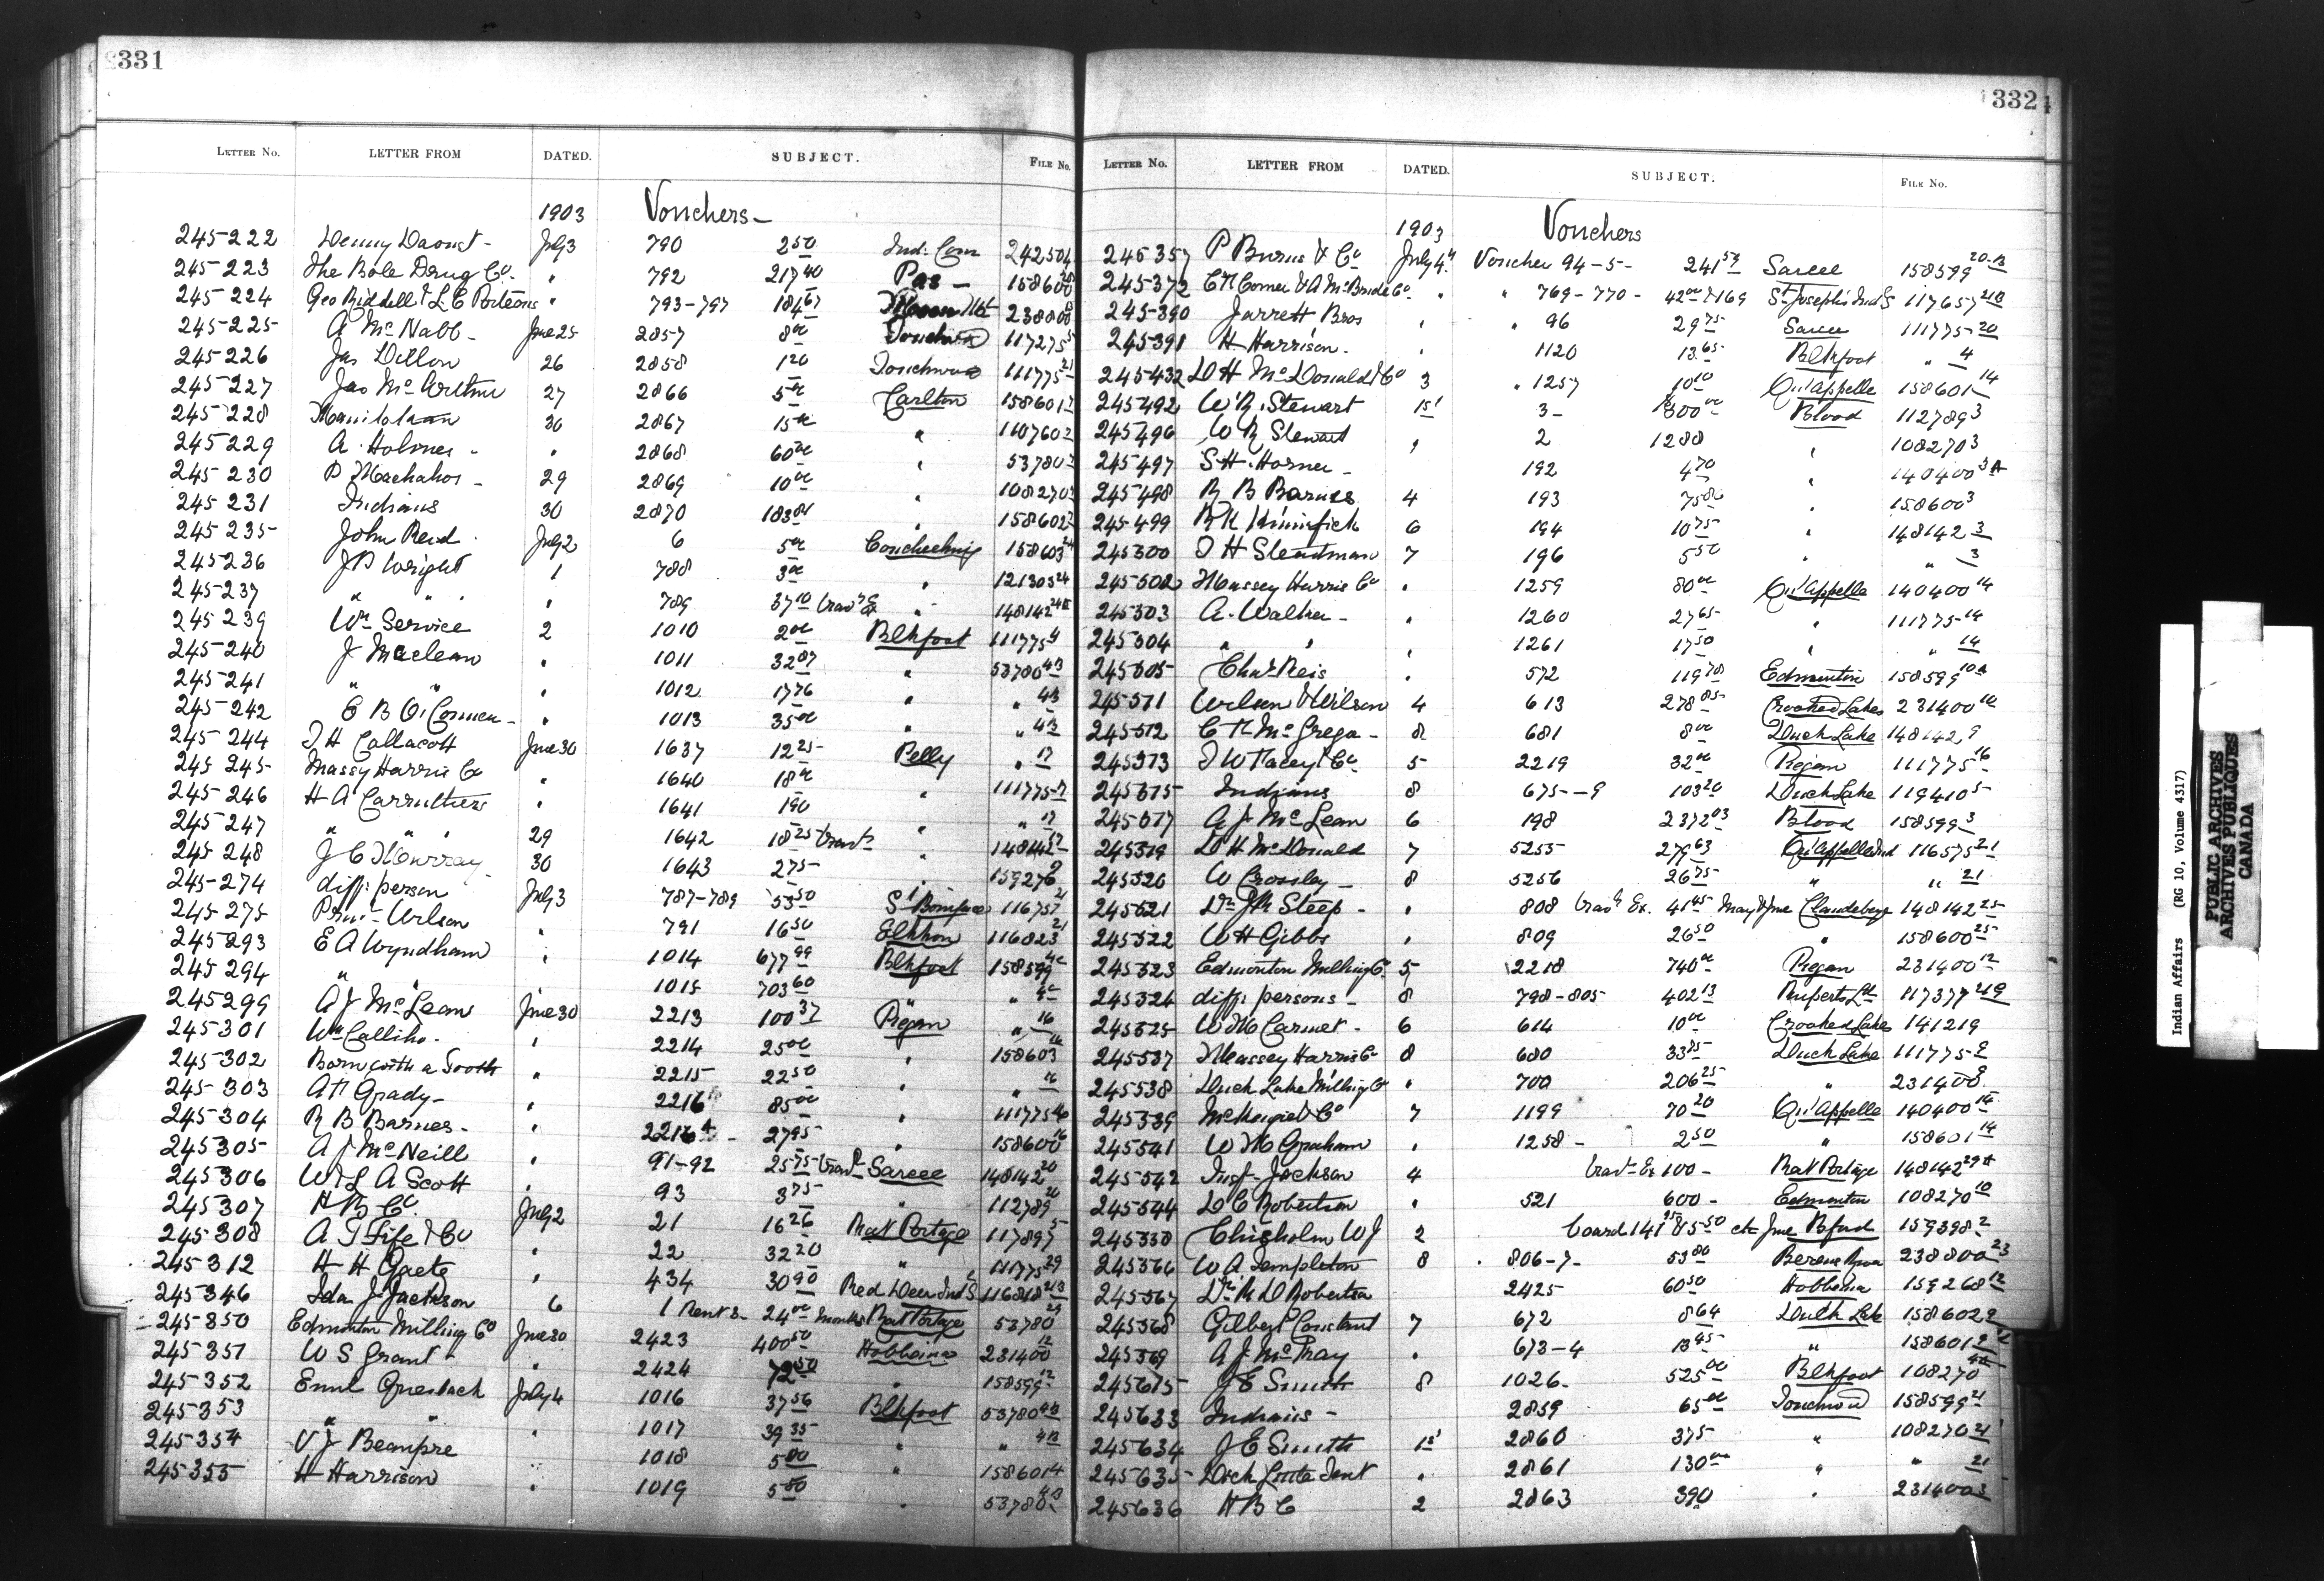 331
LETTER No. LETTER FROM DATED. SUBJECT. FILE No.
1903 Vouchers
245222 Denny Daoust July 3 790 2 50 Ind. Com 242504
245223 The Bole Drug Co. " 792 217 40 Pas 158600
245224 Geo Riddell & L. C. Porteous " 793-797 184 67 238800
245225 A McNabb June 25 2857 8 00 Touchwood 117275
245226 Jas Dillon 26 2858 1 20 Touchwood 111775 21
245227 Jas McArthur 27 2866 5 00 Carlton 158601
245228 30 2867 15 00 "
245229 A. Holmes " 2868 60 00 " 53780
245230 P 29 2869 10 00 " 108270
245231 Indians 30 2870 183 81 " 158602
245235 John Reid July 2 6 5 00 Coucheching 158603 24
245236 J P Wright 1 788 3 00 " 121303 24
245237 " " " 789 37 10 Trav Ex " 148142
245239 Wm Service 2 1010 2 00 Blkfoot 111775 4
245240 J Maclean " 1011 32 87 " 53780 4B
245241 " " " 1012 17 76 " " 4B
245242 E B O'Connor " 1013 35 00 " " 4B
245244 T H Callacott June 30 1637 12 25 Pelly " 17
245245 Massy Harris Co " 1640 18 00 " 111775
245246 H A Carruthers " 1641 1 90 " " 17
245247 " " " 29 1642 18 25 Trav " 148142 17
245248 J C Murray 30 1643 2 75 " 159276
245274 diff. person July 3 787-789 53 50 St Boniface 116757 21
245275 Wilson " 791 16 50 Elkhorn 116823 21
245293 E A Wyndham " 1014 677 99 Blkfoot 158599 4C
245294 " " 1015 703 60 " " 4C
245299 A J McLean June 30 2213 100 37 Piegan " 16
245301 Wm Calliho. " 2214 25 00 " 158603 16
245302 " 2215 22 50 " " 16
245303 Grady " 2216 85 00 " 111775 16
245304 R B Barnes " 2216A 27 95 " 158600 16
245305 A J McNeill " 91-92 25 75 Trav Sarcee 148142 20
245306 W. L A Scott " 93 3 75 " 112789 20
245307 H B Co. July 2 21 16 26 Rat Portage 117895
245308 A T Fife & Co " 22 32 20 " 111775 29
245312 H H Gaetz " 434 30 90 Red Deer Ind S 116818 213
245346 Ida J. Jackson 6 1 Rent 3 24 00 months Rat Portage 53780 29
245350 Edmonton Milling Co June 30 2423 400 50 Hobbema 231400 12
245351 W S Grant " 2424 72 50 " 158599 12
245352 Griesbach July 4 1016 37 56 Blkfoot 53780 4B
245353 " " " 1017 39 35 " " 4B
245354 V J Beaupre " 1018 5 00 " 158601 4
245355 H Harrison " 1019 5 50 " 53780 4B
332
LETTER No. LETTER FROM DATED. SUBJECT. FILE No.
1903 Vouchers
245357 P Burns & Co July 4 Voucher 94-5- 241 59 Sarcee 158599 20
245372 Comer & A McBride Co. " " 769-770- 42 00 & 169 St Joseph's Ind S 117657
245390 Jarrett Bros " " 96 29 75 Sarcee 111775 20
245391 H Harrison " 1120 13 65 Blkfoot " 4
245432 D H McDonald & Co 3 " 1257 10 10 Qu'Appelle 158601 14
245492 W R. Stewart 1st 3- 300 00 Blood 112789 3
245496 W R Stewart " 2 1288 " 108270 3
245497 S H. Horner 192 4 70 " 140400
245498 R B Barnes 4 193 75 " 158600 3
245499 6 194 10 75 " 148142 3
245500 T H Steadman 7 196 5 50 " " 3
245502 Massey Harris Co " 1259 80 00 Qu'Appelle 140400 14
245503 A. Walker " 1260 27 65 " 111775 14
245504 " " " 1261 17 50 " " 14
245505 Chas Reis " 572 119 78 Edmonton 158599
245511 Wilson & Wilson 4 613 278 85 Crooked Lakes 231400
245512 McGregor 8 681 8 00 Duck Lake 148142 9
245513 5 2219 32 00 Piegan 111775 16
245515 Indians 8 675--9 103 20 Duck Lake 119410
245517 A J McLean 6 198 2372 03 Blood 158599 3
245519 D H McDonald 7 5255 279 63 Qu'Appelle Ind 116575 21
245520 W Crossley 8 5256 26 75 " " 21
245521 Dr J R Steep " 808 Trav Ex. 41 45 May & June Clandeboye 148142 25
245522 W H Gibbs " 809 26 50 " 158600 25
245523 Edmonton Milling Co. 5 2218 740 00 Piegan 231400
245524 diff: persons 8 798-805 402 13 Ruperts Ld 117377
245525 W M Carmet 6 614 10 00 Crooked Lakes 141219
245537 Massey Harris Co 8 680 33 85 Duck Lake 111775 9
245538 Duck Lake Milling Co " 700 206 25 " 231400
245539 & Co 7 1199 70 20 Qu'Appelle 140400 14
245541 W M Graham " 1258 2 50 " 158601 14
245542 Insp. Jackson 4 Trav Ex 100 Rat Portage 148142 29
245544 D C Robertson " 521 600 Edmonton 108270 10
245558 Chisholm W J 2 board June Bford 159398 2
245566 W A Templeton 8 806-7 53 80 Berens River 238800 23
245567 Dr R D Robertson 2425 60 50 Hobbema 159268 12
245568 Gilbert Constant 7 672 8 64 Duck Lake 158602 9
245569 A J McKay " 673-4 13 45 " 158601
245615 J E Smith 8 1026 525 00 Blkfoot 108270
245633 Indians 2859 65 00 Touchwood 158599 21
245634 J E Smith 1st 2860 375 " 108270 21
245635 " 2861 130 00 " " 21
245636 H B C 2 2863 390 " 231400
Indian Affairs (RG 10, Volume 4317)
PUBLIC ARCHIVES
ARCHIVES PUBLIQUES
CANADA